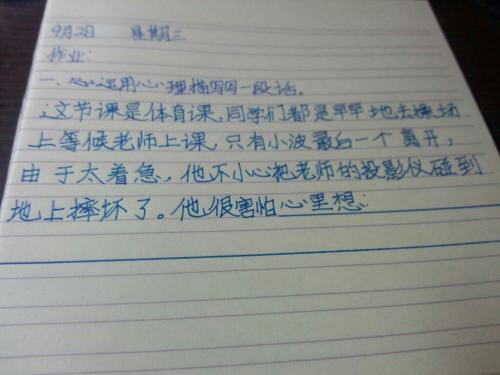 9月2日 星期三
作业:
一、运用心理描写写一段话。
这节课是体育课,同学们都是早早地去操场
上等候老师上课,只有小波最后一个离开,
由于太着急,他不小心把老师的投影仪碰到
地上摔坏了。他很害怕心里想: